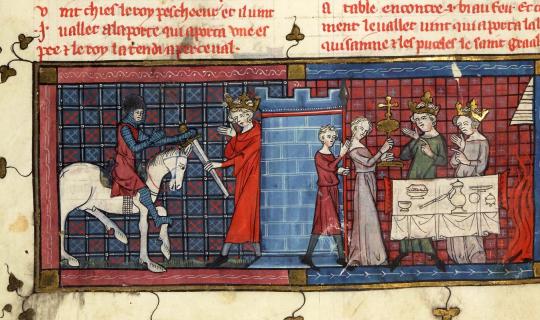 v mt chies le roy pescheeur et il vint
j uallet a la porte qui aporta vne es
pee & le roy la tendi a perceual.
a table encontre .j. biau feu. Et
ment le uallet vint qui aporta la la
qui sainne & les puceles le saint graal